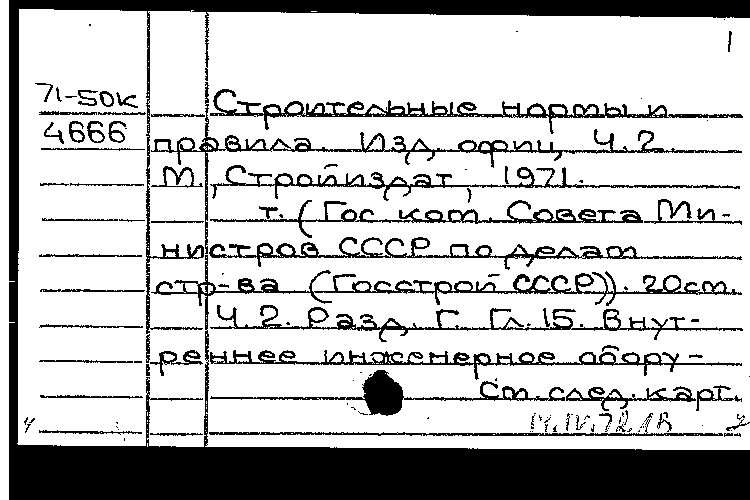 1
71-50к
4666
Строительные нормы и
правила. Изд. офиц. Ч.2.
М., Стройиздат, 1971.
т. (Гос. ком. Совета Ми-
нистров СССР по делам
стр-ва (Госстрой СССР)). 20см.
Ч.2. Разд. Г. Гл.15. Внут-
реннее инженерное обору-
См. след. карт.